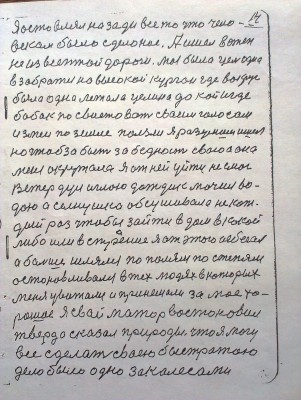 14
Я оставлял назади все то что чело-
веком было сделоное. Я ишол в тех
не известной дороги. мог было целодня
взабрати на высокой курган где воздух
было одна летала целина до кои игде
бабак по свистоват сваем голосам
измеи по земле ползли Я разумни ишол
но чтоб за быт за бедност свою она
меня окружала Я от ней уйти не смог
Ветер дул иплюю дождик мочил во-
дою а солнушко обсушивала не кож-
дий раз чтобы зайти в дом в какой
либо или в строение Я от этого избегал
а болше шлялся по полям по степям
останавливался в тех людях в которих
меня уважали и принемали за мое хо-
рошое Я свай матор востоновил
твердо сказал природи, что я могу
все сделат сваею быстратою
дело было одно за калесами